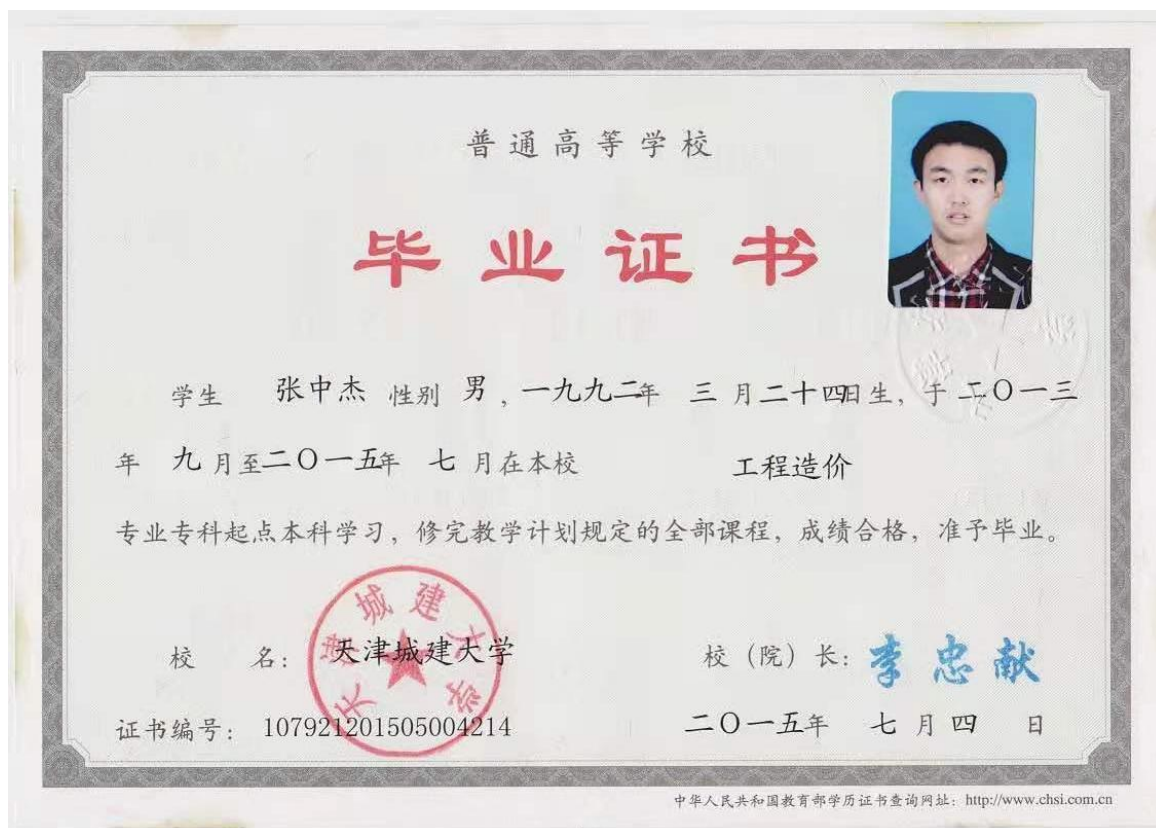 普通高等学校
毕业证书
学生 张中杰 性别 男，一九九二年 三月二十四日生，于二〇一三
年 九月至二〇一五年 七月在本校 工程造价
专业专科起点本科学习，修完教学计划规定的全部课程，成绩合格，准予毕业。
校 名：天津城建大学 校（院）长：李忠献
天津城建大学
证书编号：107921201505004214 二〇一五年 七月四 日
中华人民共和国教育部学历证书查询网址：http://www.chsi.com.cn